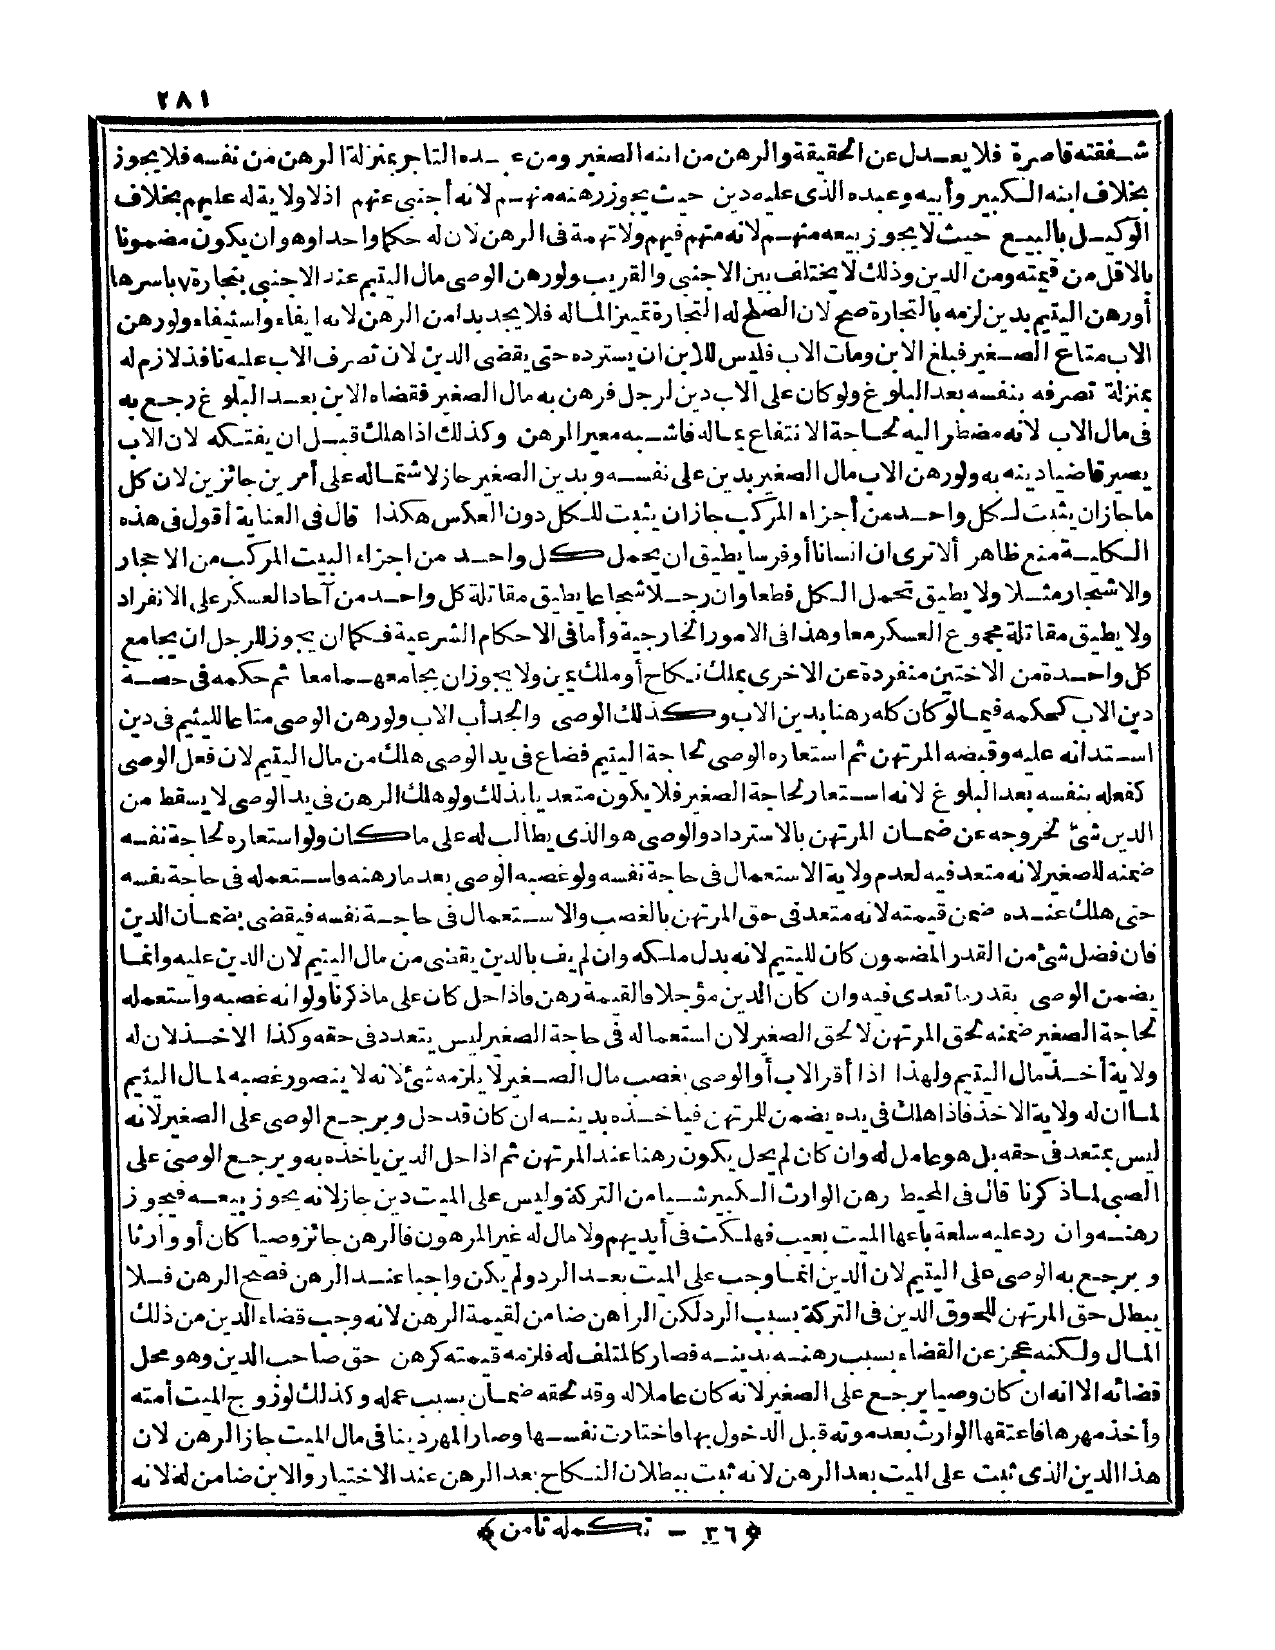 ٢٨١
شفقته قاصرة فلا يعدل عن الحقيقة والرهن من ابنه الصغير ومن عبده التاجر بمنزلة الرهن من نفسه فلا يجوز
بخلاف ابنه الكبير وأبيه وعبده الذى عليه دين حيث يجوز رهنه منهم لانه أجنبى عنهم اذ لا ولاية له عليهم بخلاف
الوكيل بالبيع حيث لا يجوز بيعه منهم لانه متهم فيهم ولا تهمة فى الرهن لان له حكما واحدا وهو ان يكون مضمونا
بالاقل من قيمته ومن الدين وذلك لا يختلف بين الاجنبى والقريب ولو رهن الوصى مال اليتيم عند الاجنبى بتجارة باسرها
أو رهن اليتيم بدين لزمه بالتجارة صح لان الصلح له التجارة تميز الماله فلا يجد بدا من الرهن لانه ايفاء واستيفاء ولو رهن
الاب متاع الصغير فبلغ الابن ومات الاب فليس للابن ان يسترده حتى يقضى الدين لان تصرف الاب عليه نافذ لازم له
بمنزلة تصرفه بنفسه بعد البلوغ ولو كان على الاب دين لرجل فرهن به مال الصغير فقضاه الابن بعد البلوغ رجع به
فى مال الاب لانه مضطر اليه لحاجة الانتفاع بماله فاشبه معير الرهن وكذلك اذا هلك قبل ان يفتكه لان الاب
يصير قاضيا دينه به ولو رهن الاب مال الصغير بدين على نفسه وبدين الصغير جاز لاشتماله على أمرين جائزين لان كل
ما جاز ان يثبت لكل واحد من أجزاء المركب جاز ان يثبت للكل دون العكس هكذا قال فى العناية أقول فى هذه
الكلية منع ظاهر ألا ترى ان انسانا أو فرسا يطيق ان يحمل كل واحد من اجزاء البيت المركب من الاحجار
والاشجار مثلا ولا يطيق تحمل الكل قطعا وان رجلا شجاعا يطيق مقاتلة كل واحد من آحاد العسكر على الانفراد
ولا يطيق مقاتلة مجموع العسكر معا وهذا فى الامور الخارجية وأما فى الاحكام الشرعية فكما ان يجوز للرجل ان يجامع
كل واحدة من الاختين منفردة عن الاخرى بملك نكاح أو ملك يمين ولا يجوز ان يجامعهما معا ثم حكمه فى حصة
دين الاب كحكمه فيما لو كان كله رهنا بدين الاب وكذلك الوصى والجد أب الاب ولو رهن الوصى متاعا لليتيم فى دين
استدانه عليه وقبضه المرتهن ثم استعاره الوصى لحاجة اليتيم فضاع فى يد الوصى هلك من مال اليتيم لان فعل الوصى
كفعله بنفسه بعد البلوغ لانه استعار لحاجة الصغير فلا يكون متعديا بذلك ولو هلك الرهن فى يد الوصى لا يسقط من
الدين شئ لخروجه عن ضمان المرتهن بالاسترداد والوصى هو الذى يطالب له على ما كان ولو استعاره لحاجة نفسه
ضمنه للصغير لانه متعد فيه لعدم ولاية الاستعمال فى حاجة نفسه ولو غصبه الوصى بعد ما رهنه فاستعمله فى حاجة نفسه
حتى هلك عنده ضمن قيمته لانه متعد فى حق المرتهن بالغصب والاستعمال فى حاجة نفسه فيقضى بضمان الدين
فان فضل شئ من القدر المضمون كان لليتيم لانه بدل ملكه وان لم يف بالدين يقضى من مال اليتيم لان الدين عليه وانما
يضمن الوصى بقدر ما تعدى فيه وان كان الدين مؤجلا فالقيمة رهن فاذا حل كان على ما ذكرنا ولو انه غصبه واستعمله
لحاجة الصغير ضمنه لحق المرتهن لا لحق الصغير لان استعماله فى حاجة الصغير ليس بتعدد فى حقه وكذا الاخذ لان له
ولاية أخذ مال اليتيم ولهذا اذا أقر الاب أو الوصى بغصب مال الصغير لا يلزمه شئ لانه لا يتصور غصبه لمال اليتيم
لما ان له ولاية الاخذ فاذا هلك فى يده يضمن للمرتهن فياخذه بدينه ان كان قد حل ويرجع الوصى على الصغير لانه
ليس بمتعد فى حقه بل هو عامل له وان كان لم يحل يكون رهنا عند المرتهن ثم اذا حل الدين ياخذه به ويرجع الوصى على
الصبى لما ذكرنا قال فى المحيط رهن الوارث الكبير شيأ من التركة وليس على الميت دين جاز لانه يجوز بيعه فيجوز
رهنه وان رد عليه سلعة باعها الميت بعيب فهلكت فى أيديهم ولا مال له غير المرهون فالرهن جائز وصيا كان أو وارثا
ويرجع به الوصى على اليتيم لان الدين انما وجب على الميت بعد الرد ولم يكن واجبا عند الرهن فصح الرهن فلا
يبطل حق المرتهن للحوق الدين فى التركة بسبب الرد لكن الراهن ضامن لقيمة الرهن لانه وجب قضاء الدين من ذلك
المال ولكنه عجز عن القضاء بسبب رهنه بدينه فصار كالمتلف له فلزمه قيمته كرهن حق صاحب الدين وهو محل
قضائه الا انه ان كان وصيا يرجع على الصغير لانه كان عاملا له وقد لحقه ضمان بسبب عمله وكذلك لو زوج الميت أمته
وأخذ مهرها فاعتقها الوارث بعد موته قبل الدخول بها فاختارت نفسها وصار المهر دينا فى مال الميت جاز الرهن لان
هذا الدين الذى ثبت على الميت بعد الرهن لانه ثبت ببطلان النكاح بعد الرهن عند الاختيار والابن ضامن له لانه
﴿٣٦ - تكمله ثامن﴾